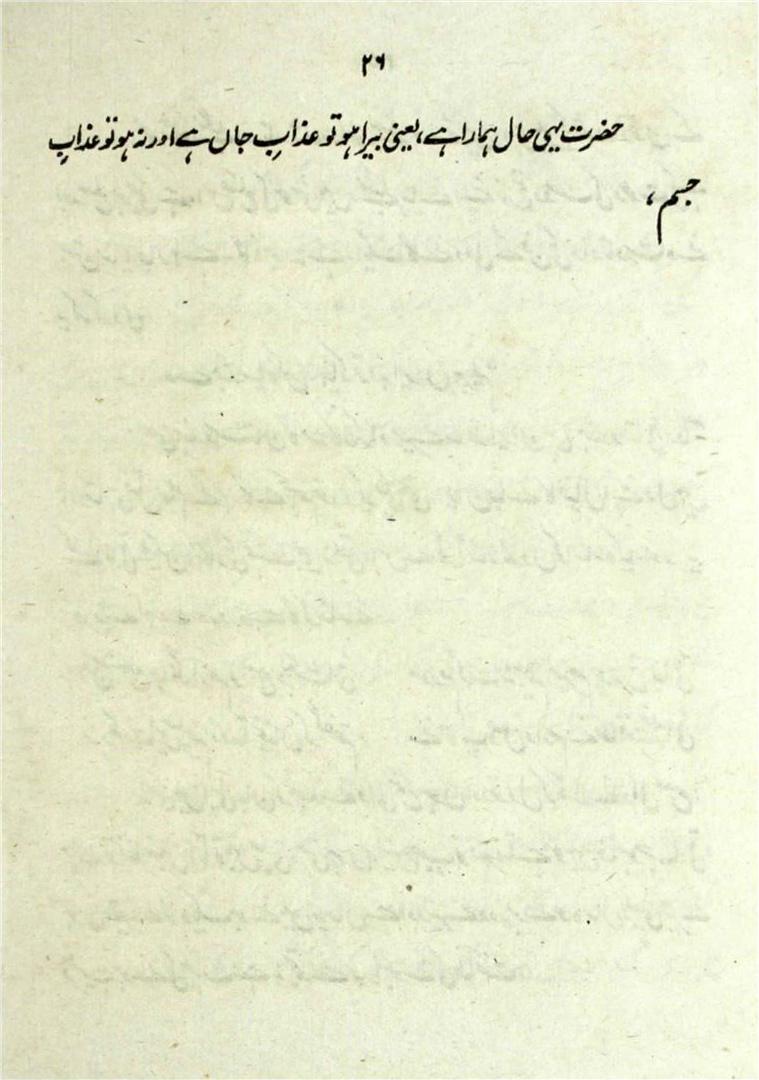 ۲۶
حضرت یہی حال ہمارا ہے، یعنی بیرا ہو تو عذابِ جاں ہے اور نہ ہو تو عذابِ
جسم،